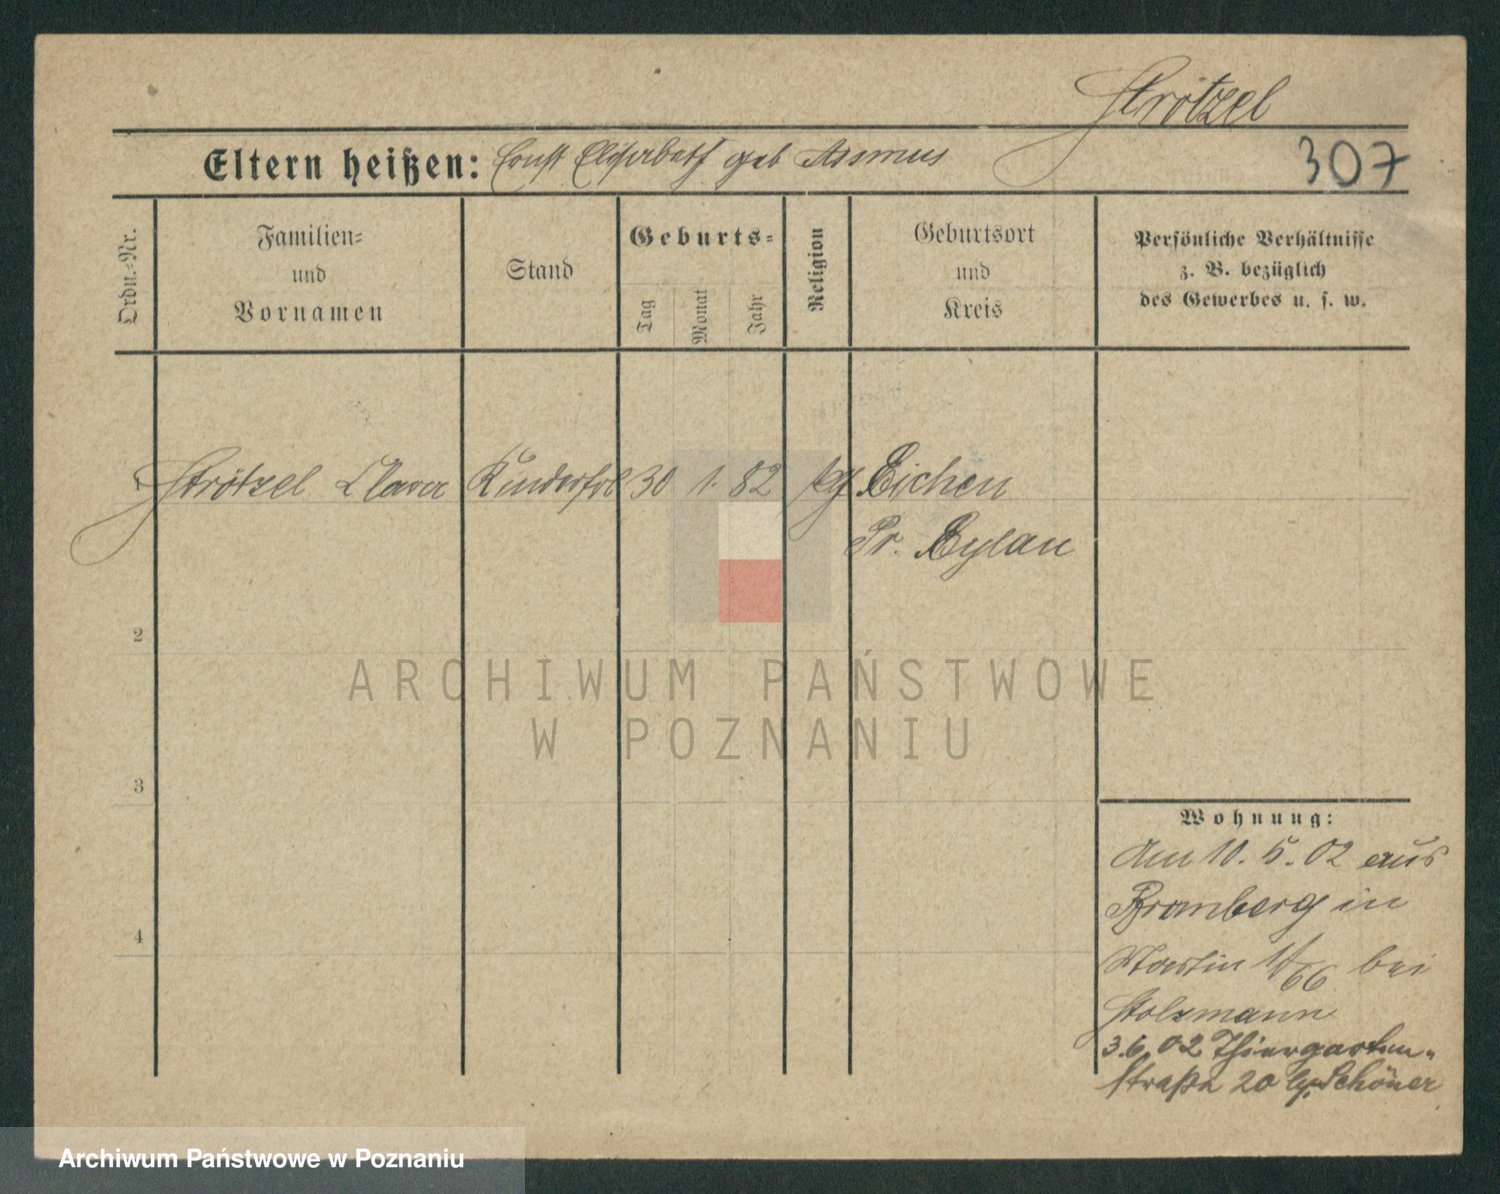 Strötzel
Eltern heißen: Ernst Elisabeth geb Assmus
307
Ordn.-Nr.
Familien-
und
Vornamen
Stand
Geburts-
Tag
Monat
Jahr
Religion
Geburtsort
und
Kreis
Persönliche Verhältnisse
z. B. bezüglich
des Gewerbes u. s. w.
1 Strötzel Clara Kinderfrl 30 1. 82 Eichen
Pr. Eylau
2
ARCHIWUM PAŃSTWOWE
W POZNANIU
3
Wohnung:
Am 10. 5. 02 aus
Bromberg in
Martin 1/66 bei
Stolzmann
3.6.02 Thiergarten-
straße 20 Schöner
4
Archiwum Państwowe w Poznaniu